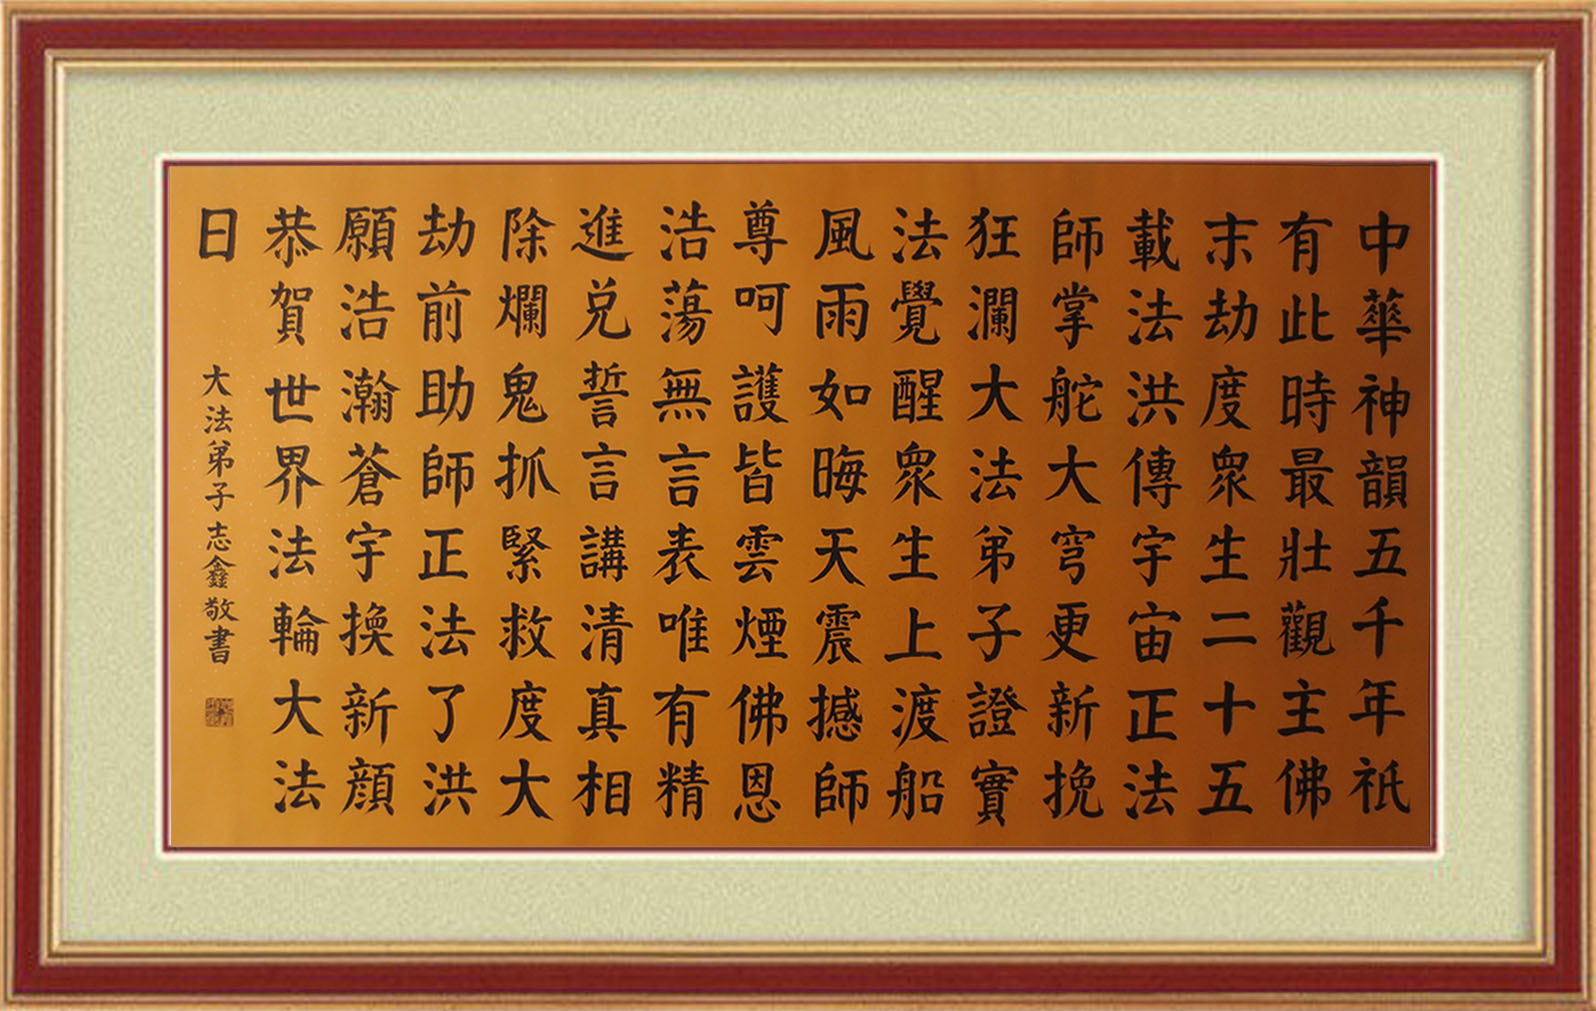 中華神韻五千年祇
有此時最壯觀主佛
末劫度衆生二十五
載法洪傳宇宙正法
師掌舵大穹更新挽
狂瀾大法弟子證實
法覺醒衆生上渡船
風雨如晦天震撼師
尊呵護皆雲煙佛恩
浩蕩無言表唯有精
進兑誓言講清真相
除爛鬼抓緊救度大
劫前助師正法了洪
願浩瀚蒼宇換新顔
恭賀世界法輪大法
日
大法弟子志鑫敬書